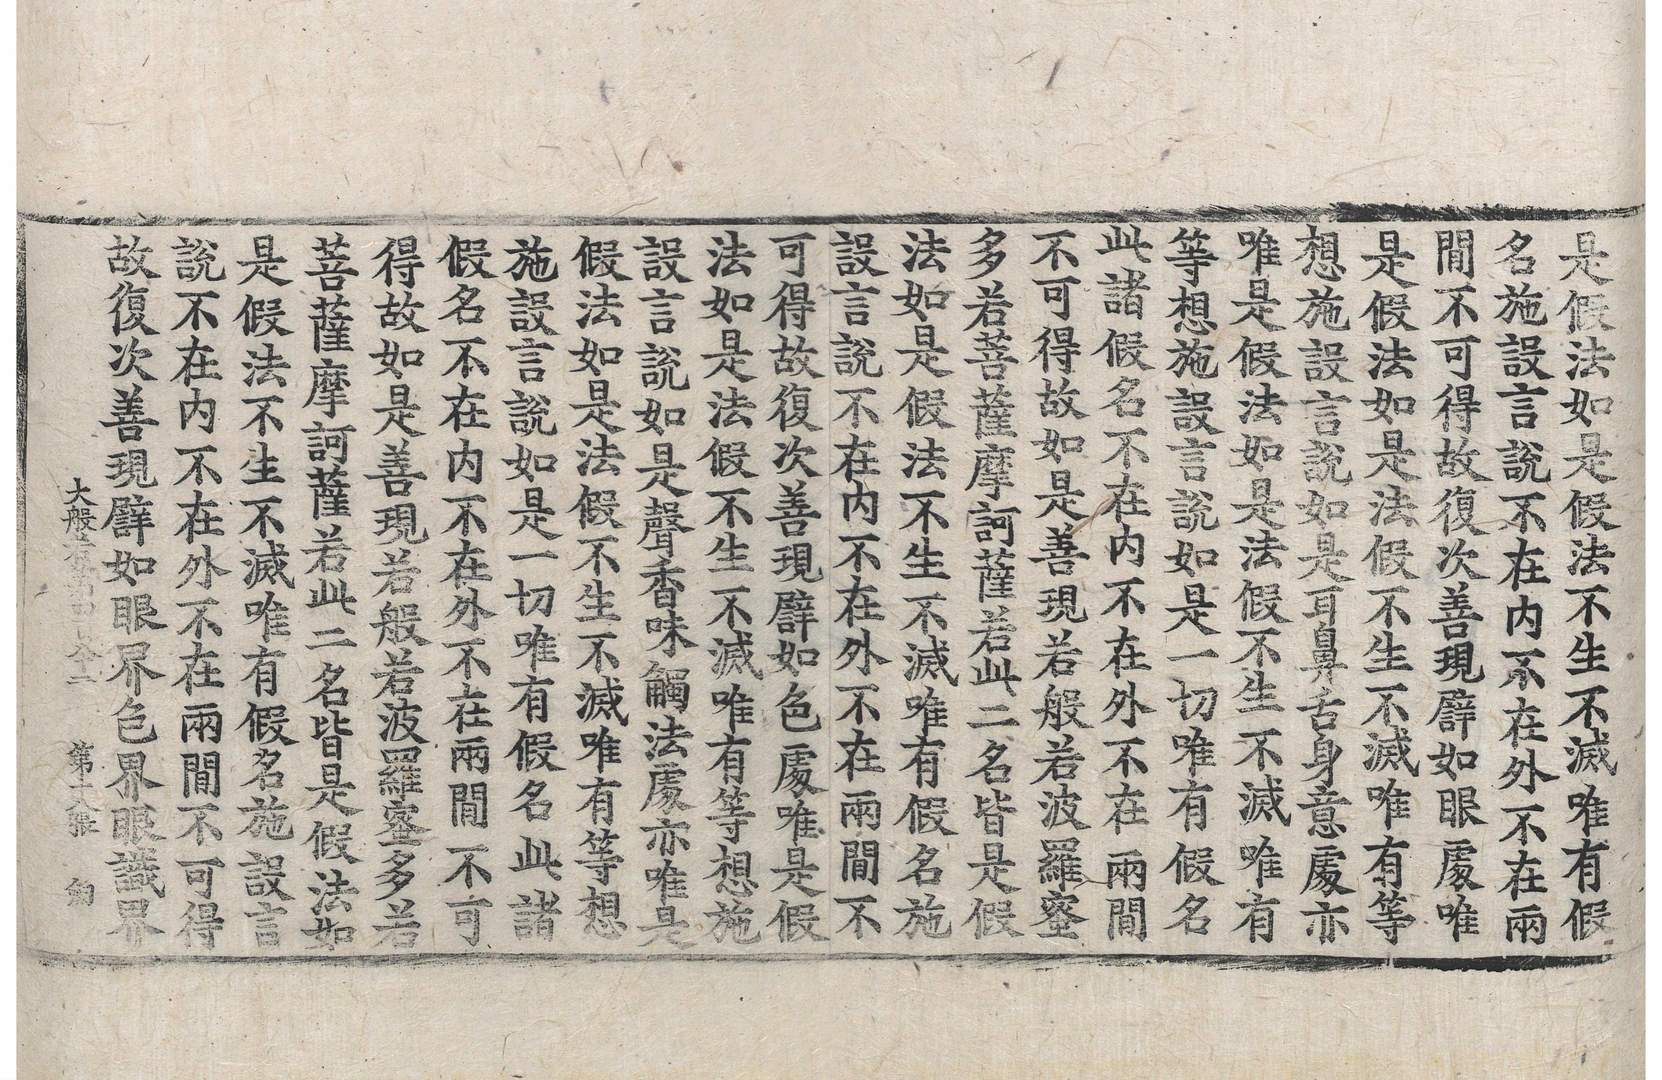 是假法如是假法不生不滅唯有假
名施設言說不在内不在外不在兩
閒不可得故復次善現譬如眼處唯
是假法如是法假不生不滅唯有等
想施設言說如是耳鼻舌身意處亦
唯是假法如是法假不生不滅唯有
等想施設言說如是一切唯有假名
此諸假名不在内不在外不在兩閒
不可得故如是善現若般若波羅蜜
多若菩薩摩訶薩若此二名皆是假
法如是假法不生不滅唯有假名施
設言說不在内不在外不在兩閒不
可得故復次善現譬如色處唯是假
法如是法假不生不滅唯有等想施
設言說如是聲香味觸法處亦唯是
假法如是法假不生不滅唯有等想
施設言說如是一切唯有假名此諸
假名不在内不在外不在兩閒不可
得故如是善現若般若波羅蜜多若
菩薩摩訶薩若此二名皆是假法如
是假法不生不滅唯有假名施設言
說不在内不在外不在兩閒不可得
故復次善現譬如眼界色界眼識界
大般若 第 張